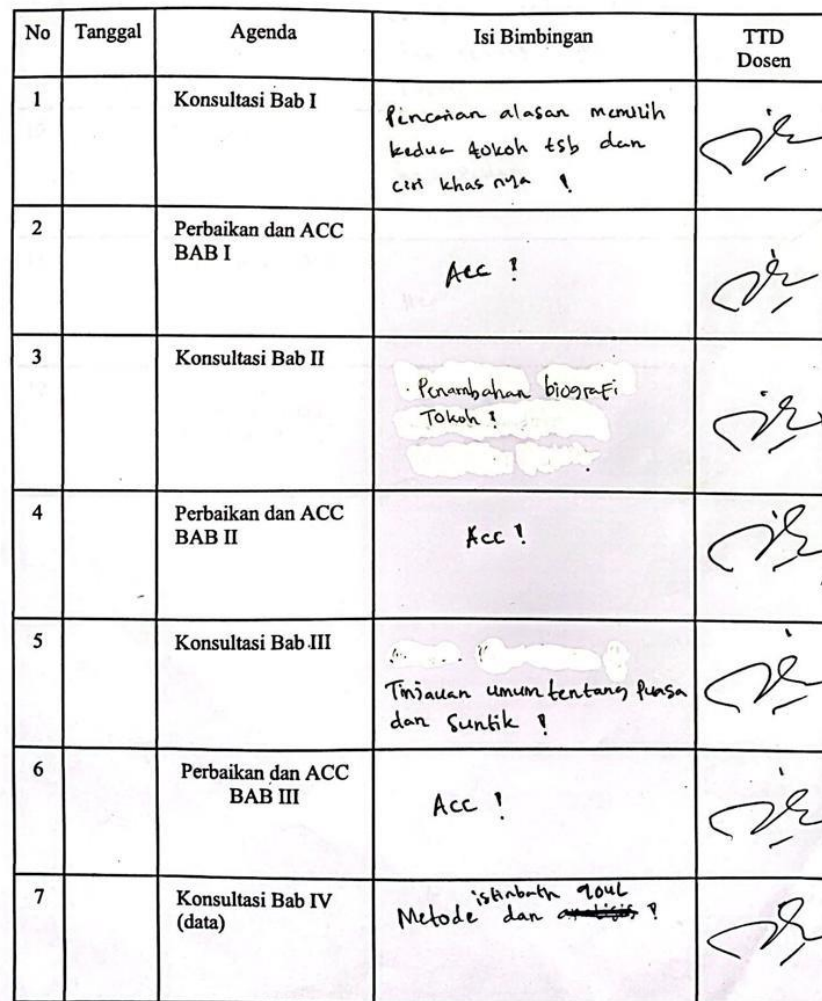 No Tanggal Agenda Isi Bimbingan TTD
Dosen
1 Konsultasi Bab I
Pencarian alasan memilih
kedua tokoh tsb dan
ciri khas nya !
2 Perbaikan dan ACC
BAB I
Acc !
3 Konsultasi Bab II
Penambahan biografi
Tokoh !
4 Perbaikan dan ACC
BAB II
Acc !
5 Konsultasi Bab III
Tinjauan umum tentang Puasa
dan Suntik !
6 Perbaikan dan ACC
BAB III
Acc !
7 Konsultasi Bab IV
(data)
istinbath qoul
Metode dan !